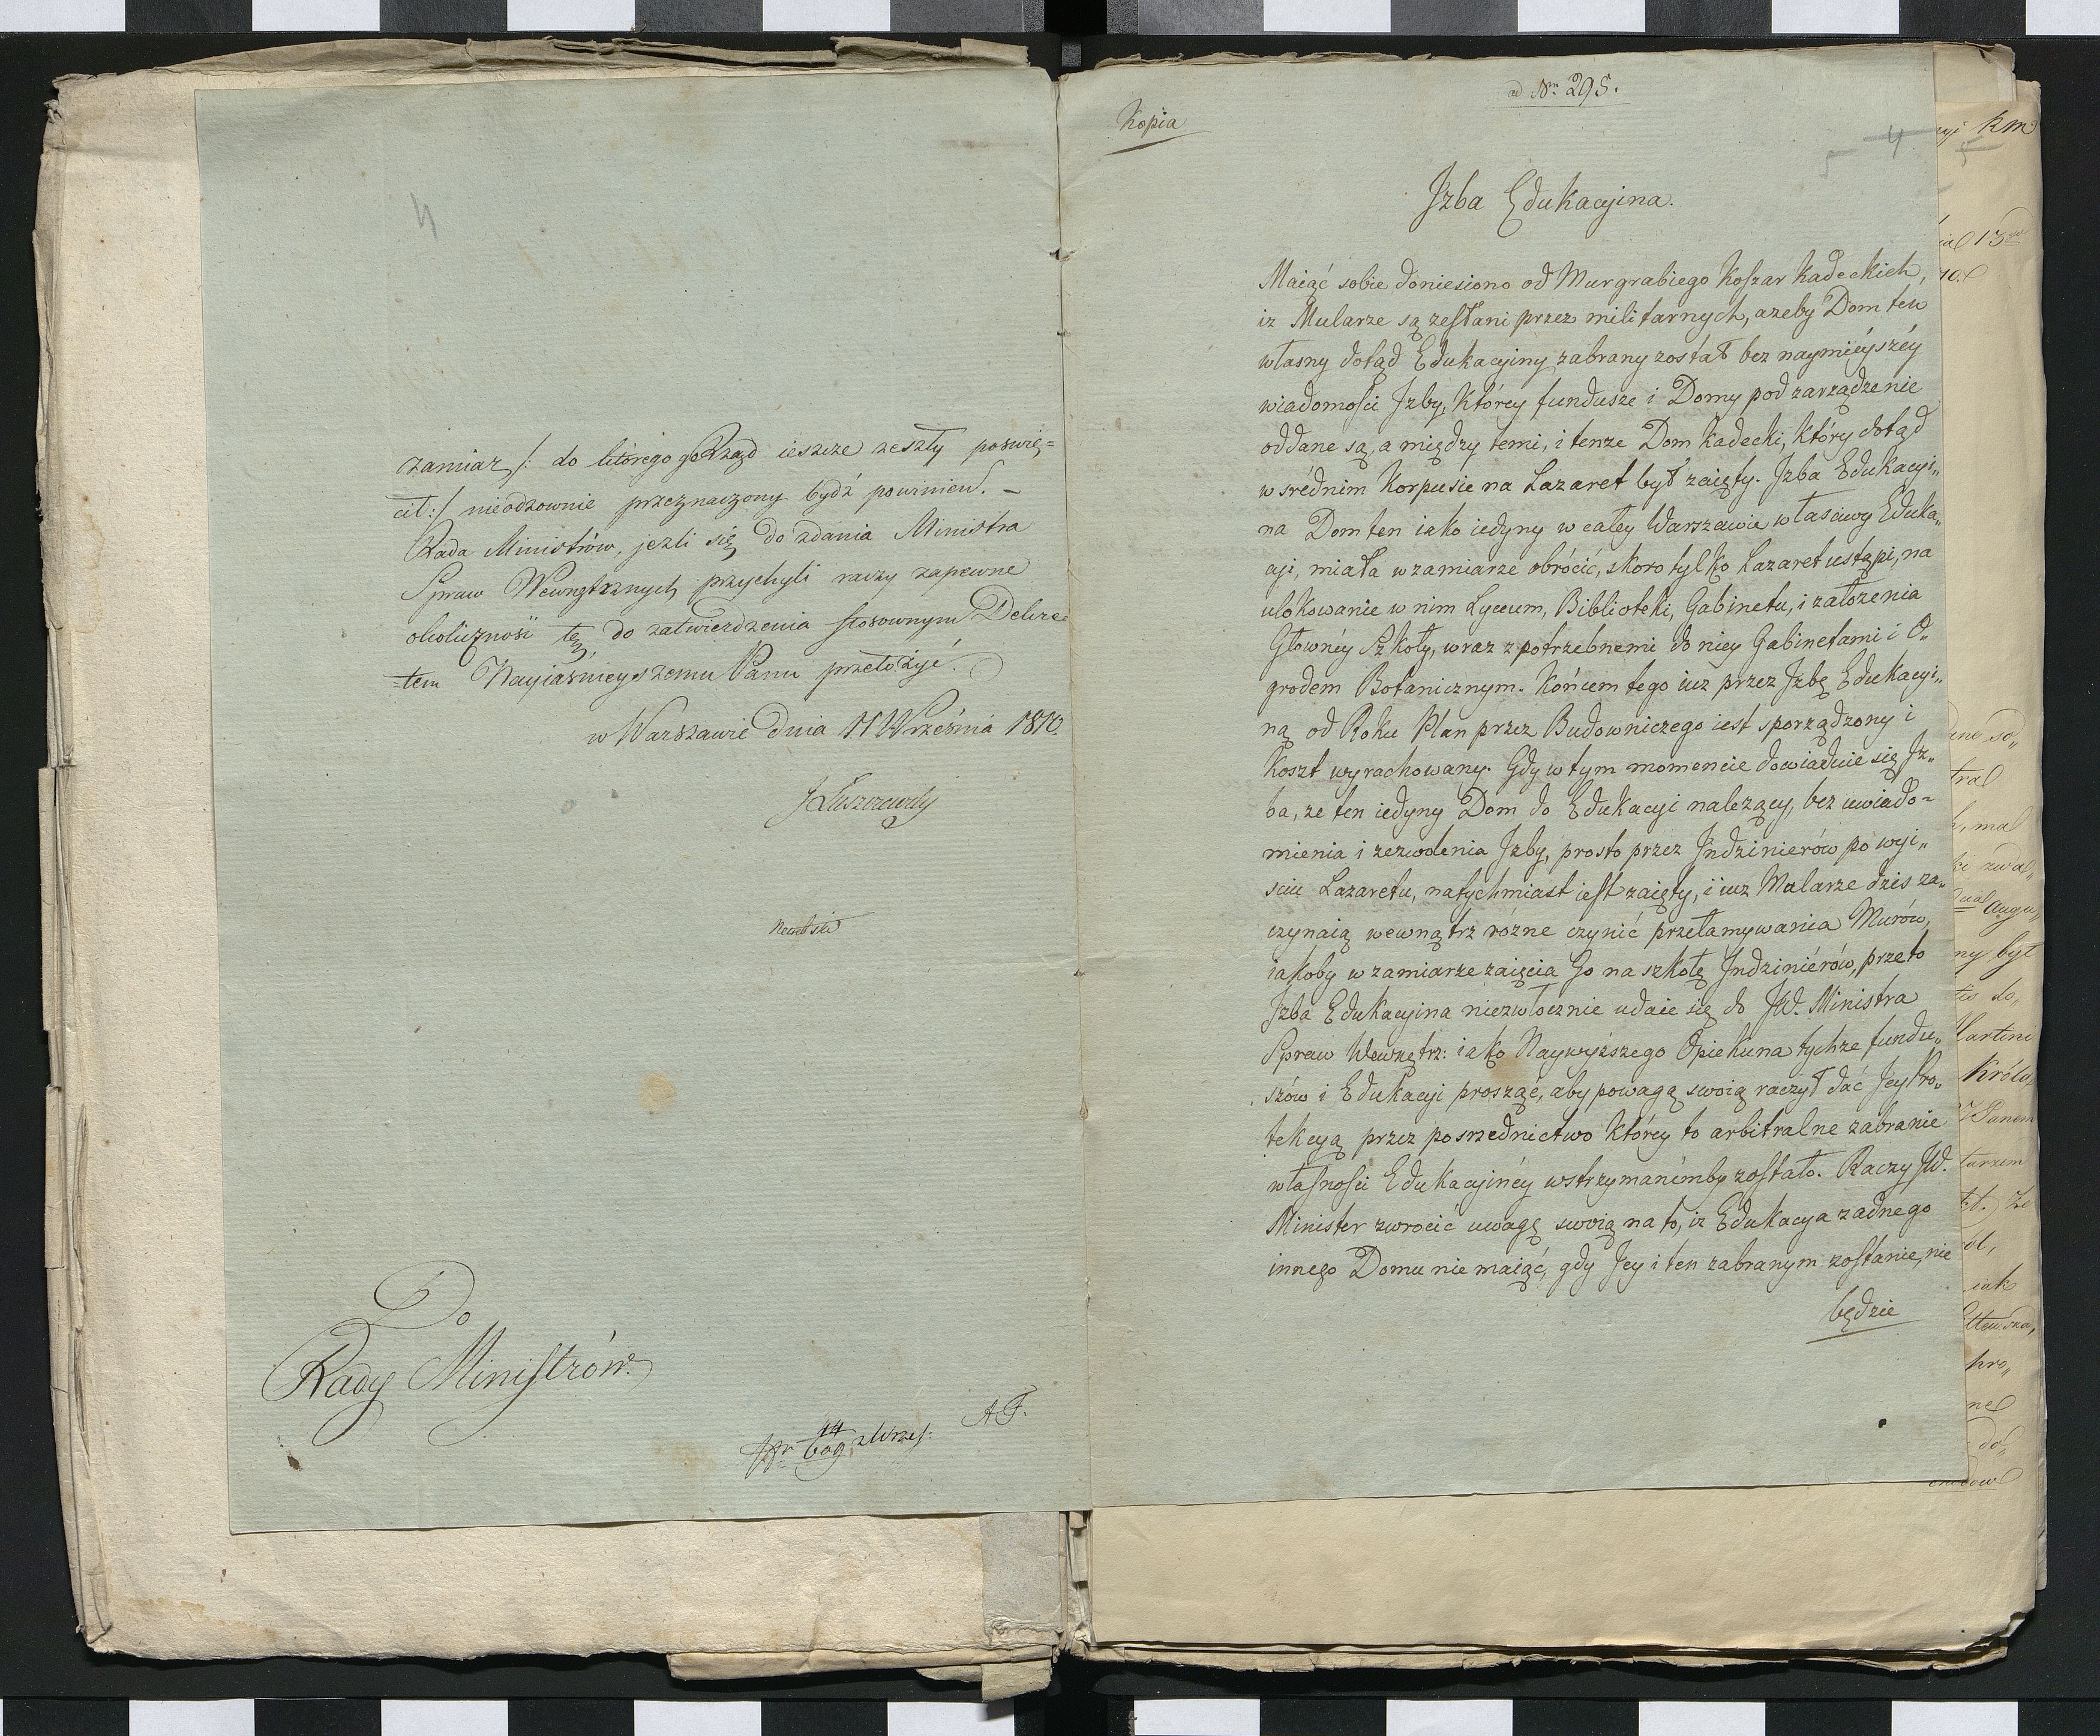 4
zamiar /: do którego go Rząd ieszcze zeszły poswię=
cił :/ nieodzownie przeznaczony bydź powinien. –
Rada Ministrów, jezli się do zdania Ministra
Spraw Wewnętrznych przychyli raczy zapewne
okoliczność tę do zatwierdzenia stosownym Dekre=
=tem Nayiaśnieyszemu Panu przełożyć.
w Warszawie dnia 11 Września 1810.
J Łuszczewski
Do
Rady Ministrów.
A F.
ad Nrm 295.
Kopia
4
Jzba Edukacyina.
Maiąć sobie doniesiono od Murgrabiego Koszar Kadeckich,
iz Mularze są zesłani przez militarnych, azeby Dom ten
własny dotąd Edukacyiny zabrany został bez naymnieyszéy
wiadomości Jzby, którey fundusze i Domy pod zarządzenie
oddane są, a między temi, i tenze Dom Kadecki, który dotąd
w srédnim Korpusie na Lazaret był zaięty. Jzba Edukacyi„
na Dom ten iako iedyny w całey Warszawie własciwy Eduka„
cyi, miała w zamiarze obrócić, skoro tylko Lazaret ustąpi, na
ulokowanie w nim Lyceum, Biblioteki, Gabinetu, i załozenia
Głownéy Szkoły, wraz z potrzebnemi do niey Gabinetami i O„
grodem Botanicznym. Końcem tego iuz przez Jzbę Edukacyi„
ną od Roku Plan przez Budowniczego iest sporządzony i
Koszt wyrachowany. Gdy w tym momencie dowiaduie się Jz„
ba, ze ten iedyny Dom do Edukacyi nalezący, bez uwiado=
mienia i zezwolenia Jzby, prosto przez Jndzinierów po wyi„
sciu Lazaretu, natychmiast iest zaięty, i iuz Mularze dzis za„
czynaią wewnątrz rózne czynić przełamywania Murów,
iakoby w zamiarze zaięcia Go na szkołę Jndziniérów, przeto
Jzba Edukacyina niezwłocznie udaie się do JW. Ministra
Spraw Wewnętrz: iako Naywyższego Opiekuna tychze fundu„
szów i Edukacyi prosząć, aby powagą swoią raczył dać Jey Pro„
tekcyą przez posrzednictwo którey to arbitralne zabranie
własnosci Edukacyinéy wstrzymaném by zostało. Raczy JW.
Minister zwrocić uwagę swoią na to, iz Edukacya zadnego
innego Domu nie maiąć, gdy Jey i ten zabranym zostanie, nie
będzie